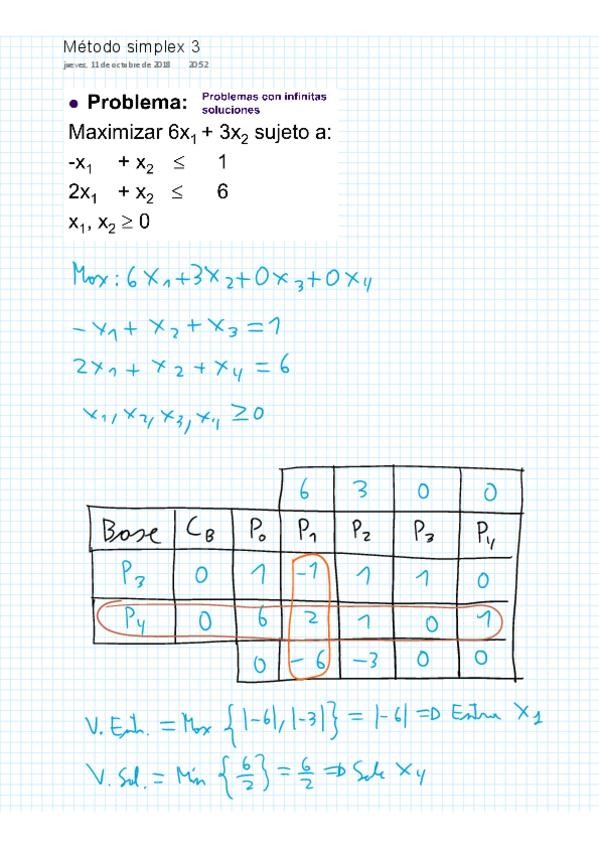 Método simplex 3
jueves, 11 de octubre de 2018 20:52
● Problema: Problemas con infinitas soluciones
Maximizar 6x₁ + 3x₂ sujeto a:
-x₁ + x₂ ≤ 1
2x₁ + x₂ ≤ 6
x₁, x₂ ≥ 0
Max: 6x₁+3x₂+0x₃+0x₄
-x₁+x₂+x₃=1
2x₁+x₂+x₄=6
x₁,x₂,x₃,x₄ ≥0
6 3 0 0
Base C_B P₀ P₁ P₂ P₃ P₄
P₃ 0 1 -1 1 1 0
P₄ 0 6 2 1 0 1
0 -6 -3 0 0
V. Ent. = Max {|-6|,|-3|} = |-6| ⇒ Entra x₁
V. Sal. = Mín {6/2} = 6/2 ⇒ Sale x₄